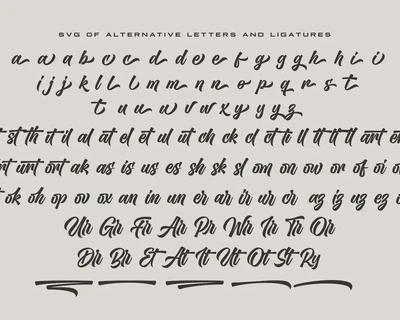 SVG OF ALTERNATIVE LETTERS AND LIGATURES
a a a b c c d d e e f g g g h h i i
i j j k l l l m m n n o p q r s t
t u u u v w x y y y z
st th it il al at el et ul ut ch ck cl ct ti ll tt tl tl art
urt ort ak as is us es sh sk sl om on ow or of oi
ok oh op ov ox an in un er ar ir ur cr ag ig ug eg
Ur Gir Fir Air Pr Wr Ir Tr Oir
Dir Bir Et At It Ut Ot St Ry